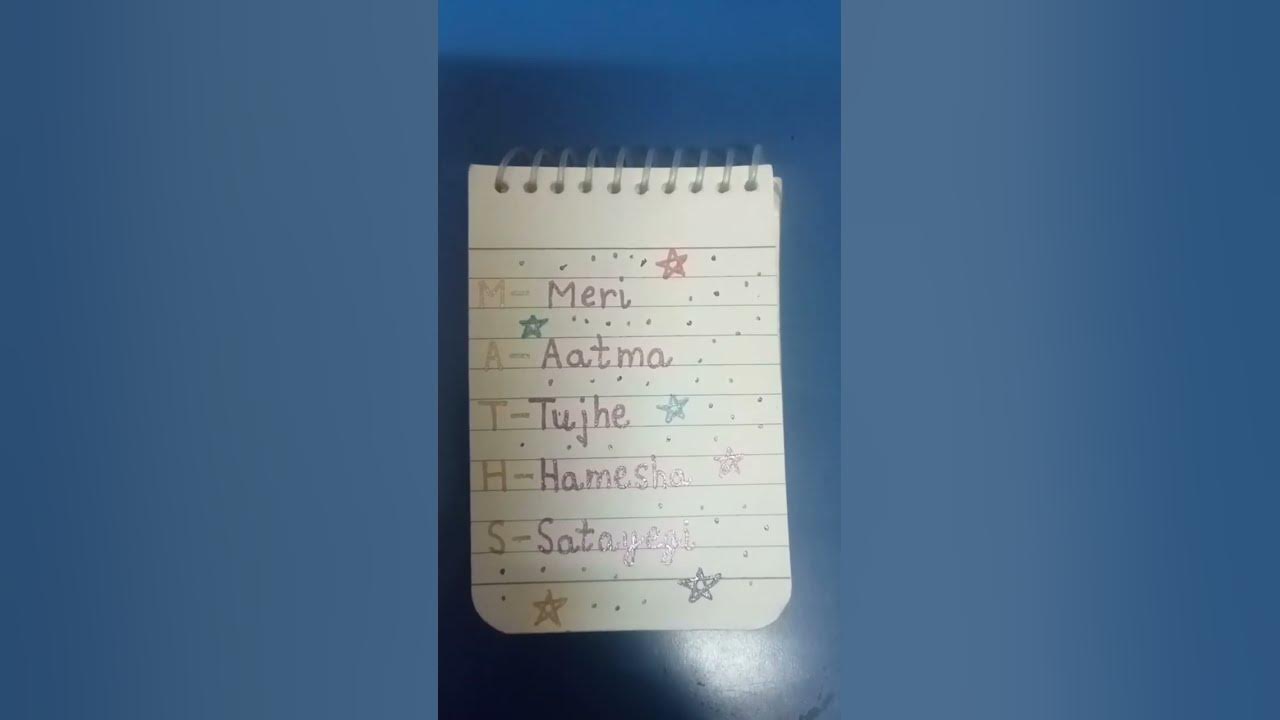 M- Meri
A- Aatma
T- Tujhe
H- Hamesha
S- Satayegi